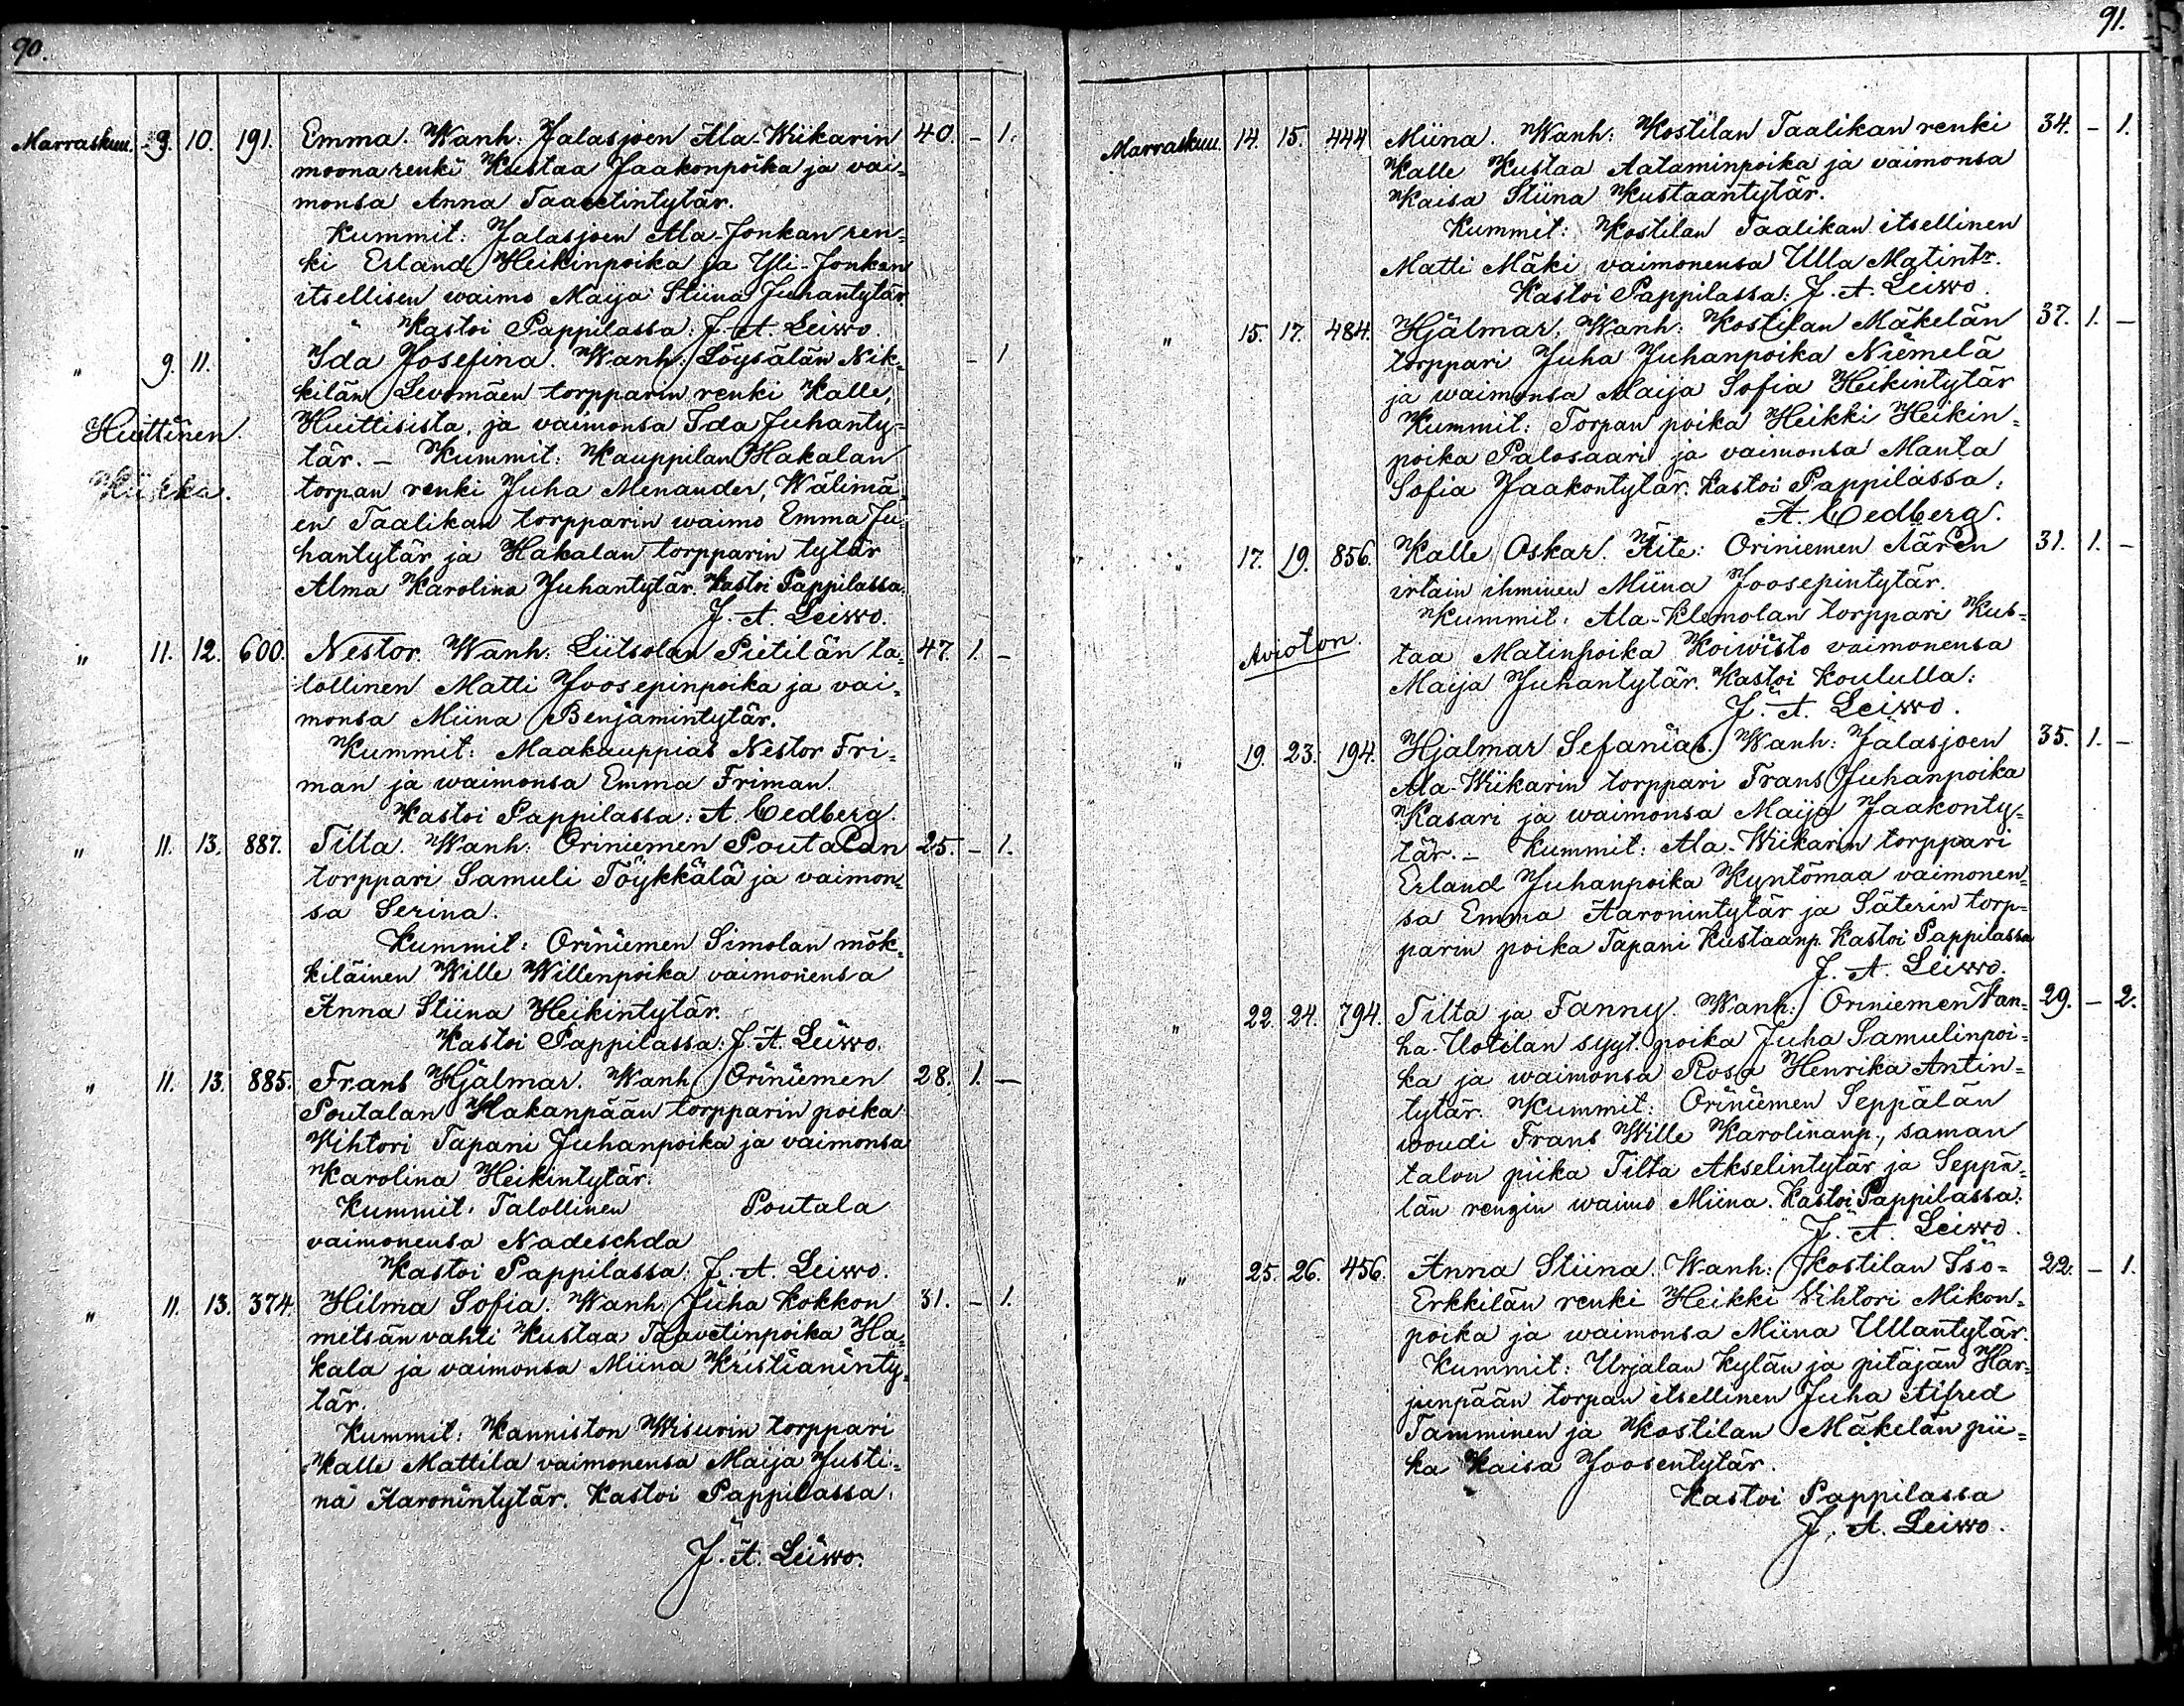 90.
Marraskuu. 9. 10. 191. Emma. Wanh: Jalasjoen Ala-Wiikarin 40. - 1.
moonarenki Kustaa Jaakonpoika ja vai=
monsa Anna Taavetintytär.
Kummit: Jalasjoen Ala-Jonkan ren=
ki Erland Heikinpoika ja Yli-Jonkan
itsellisen waimo Maija Stiina Juhantytär.
Kastoi Pappilassa: J. A. Leiwo.
" 9. 11. Ida Josefina. Wanh: Löysälän Nik= - 1
kilän Levomäen torpparin renki Kalle,
Huittinen. Huittisista, ja vaimonsa Ida Juhanty=
tär. - Kummit: Kauppilan Hakalan
torpan renki Juha Menander, Wälimä=
en Taalikan torpparin waimo Emma Ju=
hantytär ja Hakalan torpparin tytär
Alma Karolina Juhantytär. Kastoi Pappilassa:
J. A. Leiwo.
" 11. 12. 600. Nestor. Wanh: Liitsolan Pietilän ta= 47. 1. -
lollinen Matti Joosepinpoika ja vai=
monsa Miina Benjamintytär.
Kummit: Maakauppias Nestor Fri=
man ja waimonsa Emma Friman.
Kastoi Pappilassa: A. Cedberg.
" 11. 13. 887. Tilta. Wanh: Oriniemen Poutalan 25. - 1.
torppari Samuli Töykkälä ja vaimon=
sa Serina.
Kummit: Oriniemen Simolan mök=
kiläinen Wille Willenpoika vaimonensa
Anna Stiina Heikintytär.
Kastoi Pappilassa: J. A. Leiwo.
" 11. 13. 885. Frans Hjalmar. Wanh: Oriniemen 28. 1. -
Poutalan Hakanpään torpparin poika
Vihtori Tapani Juhanpoika ja vaimonsa
Karolina Heikintytär.
Kummit: Talollinen Poutala
vaimonensa Nadeschda
Kastoi Pappilassa: J. A. Leiwo.
" 11. 13. 374. Hilma Sofia. Wanh: Juha Kokkon 31. - 1.
metsänvahti Kustaa Taavetinpoika Ha=
kala ja vaimonsa Miina Kristianinty=
tär.
Kummit: Kanniston Wisurin torppari
Kalle Mattila vaimonensa Maija Justi=
na Aaronintytär. Kastoi Pappilassa:
J. A. Leiwo.
91.
Marraskuu. 14. 15. 444 Miina. Wanh: Kostilan Taalikan renki 34. - 1.
Kalle Kustaa Aataminpoika ja vaimonsa
Kaisa Stiina Kustaantytär.
Kummit: Kostilan Taalikan itsellinen
Matti Mäki vaimonensa Ulla Matintr.
Kastoi Pappilassa: J. A. Leiwo.
" 15. 17. 484. Hjälmar. Wanh: Kostilan Mäkelän 37. 1. -
torppari Juha Juhanpoika Niemelä
ja waimonsa Maija Sofia Heikintytär
Kummit: Torpan poika Heikki Heikin=
poika Palosaari ja vaimonsa Manta
Sofia Jaakontytär. Kastoi Pappilassa:
A. Cedberg.
" 17. 19. 856. Kalle Oskar. Äite: Oriniemen Äären 31. 1. -
irtain ihminen Miina Joosepintytär.
Kummit: Ala-Klemolan torppari Kus=
Avioton. taa Matinpoika Koiwisto vaimonensa
Maija Juhantytär. Kastoi Koululla:
J. A. Leiwo.
" 19. 23. 194. Hjalmar Sefanias. Wanh: Jalasjoen 35. 1. -
Ala-Wiikarin torppari Frans Juhanpoika
Kasari ja waimonsa Maija Jaakonty=
tär. - Kummit: Ala-Wiikarin torppari
Erland Juhanpoika Kyntömaa vaimonen=
sa Emma Aaronintytär ja Säterin torp=
parin poika Tapani Kustaanp. Kastoi Pappilassa
J. A. Leiwo.
" 22. 24. 794. Tilta ja Fanny. Wanh: Oriniemen Van= 29. - 2.
ha-Uotilan syyt. poika Juha Samulinpoi=
ka ja waimonsa Rosa Henrika Antin=
tytär. Kummit: Oriniemen Seppälän
woudi Frans Wille Karolinanp., saman
talon piika Tilta Akselintytär ja Seppä=
län rengin waimo Miina. Kastoi Pappilassa:
J. A. Leiwo.
" 25. 26. 456. Anna Stiina. Wanh: Kostilan Iso= 22. - 1.
Erkkilän renki Heikki Vihtori Mikon=
poika ja waimonsa Miina Ullantytär.
Kummit: Urjalan kylän ja pitäjän Har=
junpään torpan itsellinen Juha Alfred
Tamminen ja Kostilan Mäkelän pii=
ka Kaisa Joosentytär.
Kastoi Pappilassa
J. A. Leiwo.